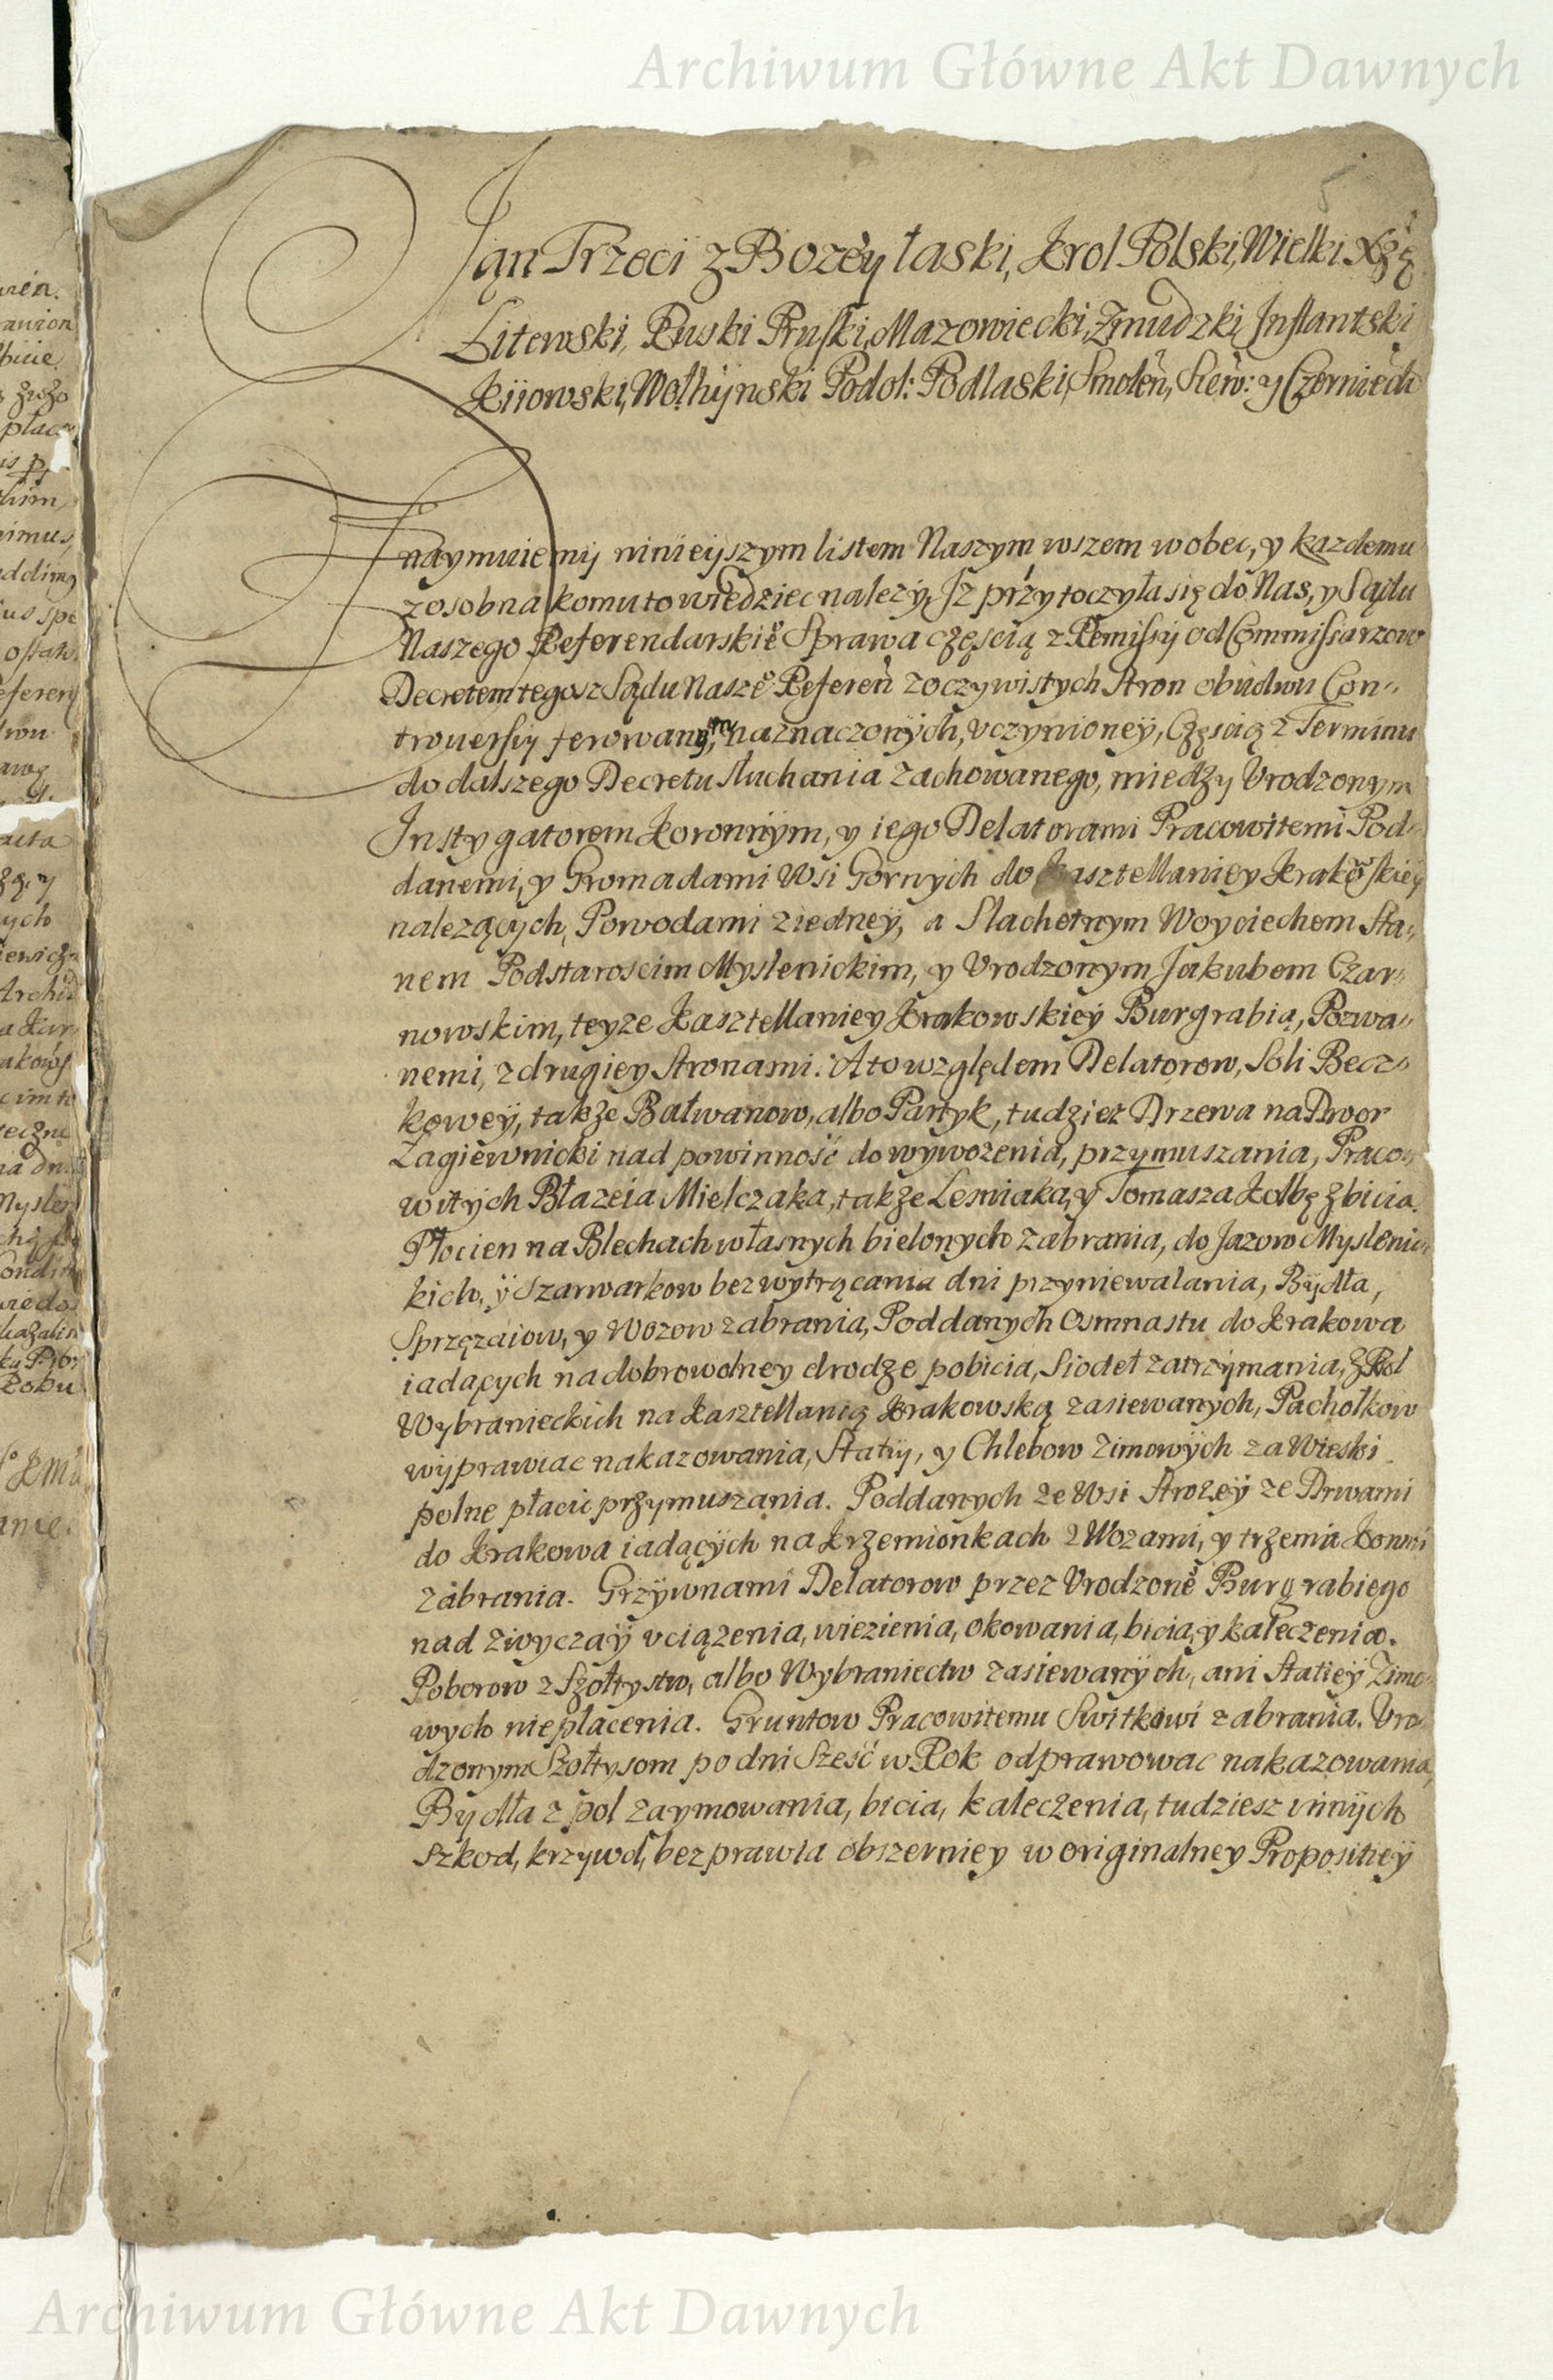 Archiwum Główne Akt Dawnych
5
Jan Trzeci z Bozey łaski, Krol Polski, Wielki Xżę
Litewski, Ruski Pruski, Mazowiecki, Zmudzki, Inflantski
Kijowski, Wołhynski Podol: Podlaski, Smoleń, Siew: y Czerniech
Znaymuiemy ninieyszym listem Naszym wszem wobec, y kazdemu
zosobna komu to wiedziec nalezy, Jz przytoczyła się do Nas, y Sądu
Naszego Referendarskie Sprawa częscią z Remissy od Commissarzow
Decretem tegosz Sądu Nasze Referen zoczywistych Stron obudwu Con-
trouersy ferowanym, naznaczonych, vczynioney, Częscią z Terminu
do dalszego Decretu słuchania zachowanego, miedzy Vrodzonym
Instygatorem Koronnym, y iego Delatorami Pracowitemi Pod-
danemi, y Gromadami Wsi Gornych do Kasztellaniey Krakowskiey
nalezących, Powodami ziedney, a Slachetnym Woyciechem Sta-
nem Podstaroscim Myslenickim, y Vrodzonym Jakubem Czar-
nowskim, teyze Kasztellaniey Krakowskiey Burgrabią, Pozwa-
nemi, z drugiey Stronami. A to względem Delatorow, Soli Becz-
kowey, także Bałwanow, albo Partyk, tudziez Drzewa na Dwor
Łagiewnicki nad powinność do wywozenia, przymuszania, Praco-
witych Błazeia Mielczaka, także Lesniaka, y Tomasza Kolbę zbicia.
Płocien na Blechach własnych bielonych zabrania, do Jazow Mysleni-
kich, y Szarwarkow bez wytrącania dni przyniewalania, Bydła,
Sprzęzaiow, y Wozow zabrania, Poddanych Osmnastu do Krakowa
iadących na dobrowolney drodze pobicia, Siodeł zatrzymania, z Rol
Wybranieckich na Kasztellanią Krakowską zasiewanych, Pachołkow
wyprawiac nakazowania, Staty, y Chlebow Zimowych za Wieski
polne płacic przymuszania. Poddanych ze Wsi Strozey ze Drwami
do Krakowa iadących na Krzemionkach z Wozami, y trzemia Konmi
zabrania. Grzywnami Delatorow przez Vrodzone Burgrabiego
nad zwyczay vciązenia, wiezienia, okowania, bicia, y kaleczenia.
Poborow z Szołtystw, albo Wybraniectw zasiewanych, ani Statiey Zimo-
wych nie płacenia. Gruntow Pracowitemu Switkowi zabrania. Vro-
dzonym Szołtysom po dni Sześć w Rok odprawowac nakazowania,
Bydła z pol zaymowania, bicia, kaleczenia, tudziesz innych
szkod, krzywd, bezprawia obszerniey w originalney Propositiey
Archiwum Główne Akt Dawnych